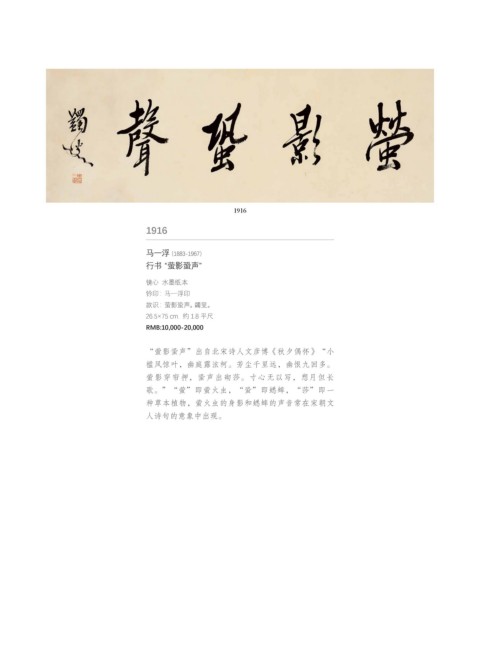 螢影蛩聲
蠲叟
1916
1916
马一浮 (1883-1967)
行书 “萤影蛩声”
镜心 水墨纸本
钤印:马一浮印
款识:萤影蛩声。蠲叟。
26.5×75 cm 约 1.8 平尺
RMB:10,000-20,000
“萤影蛩声”出自北宋诗人文彦博《秋夕偶怀》“小
槛风惊叶,幽庭露泫柯。芳尘千里远,幽恨九回多。
萤影穿帘押,蛩声出砌莎。寸心无以写,想月但长
歌。”“萤”即萤火虫,“蛩”即蟋蟀,“莎”即一
种草本植物,萤火虫的身影和蟋蟀的声音常在宋朝文
人诗句的意象中出现。